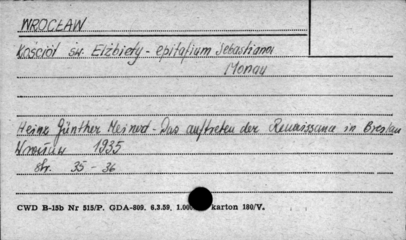 WROCŁAW
Kościół św. Elżbiety - epitafium Sebastiana
Monau
Heinz Günther Meinert - Das auftreten der Renaissance in Breslau
Wrocław 1935
str. 35 - 36
CWD B-15b Nr 515/P. GDA-809. 6.3.59. 1.00 karton 180/V.